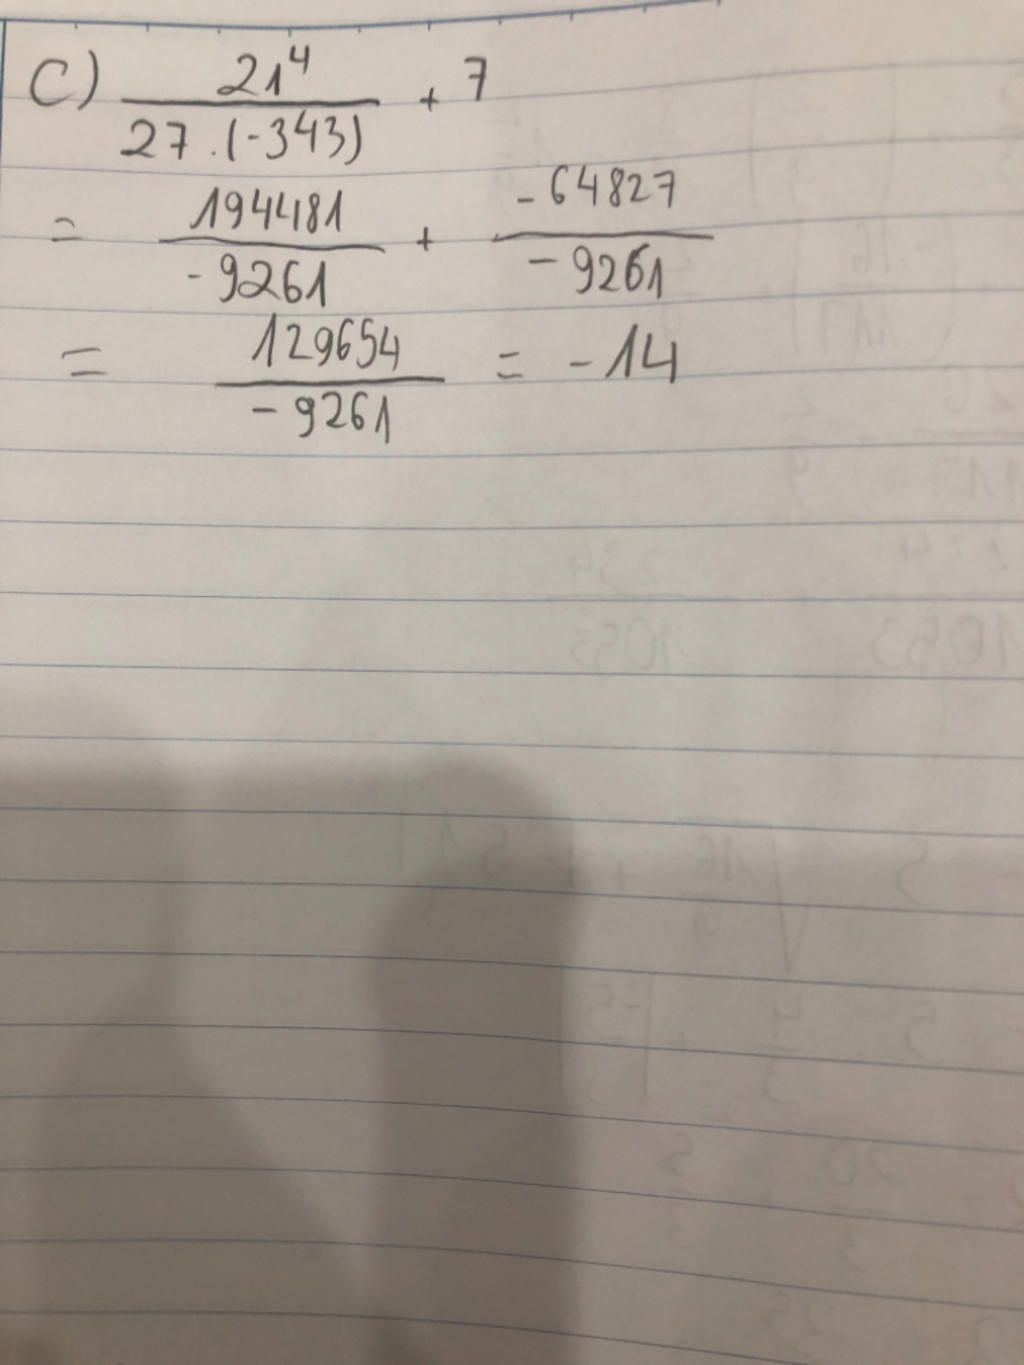 C) 21⁴ / 27 . (-343) + 7
= 194481 / -9261 + -64827 / -9261
= 129654 / -9261 = -14